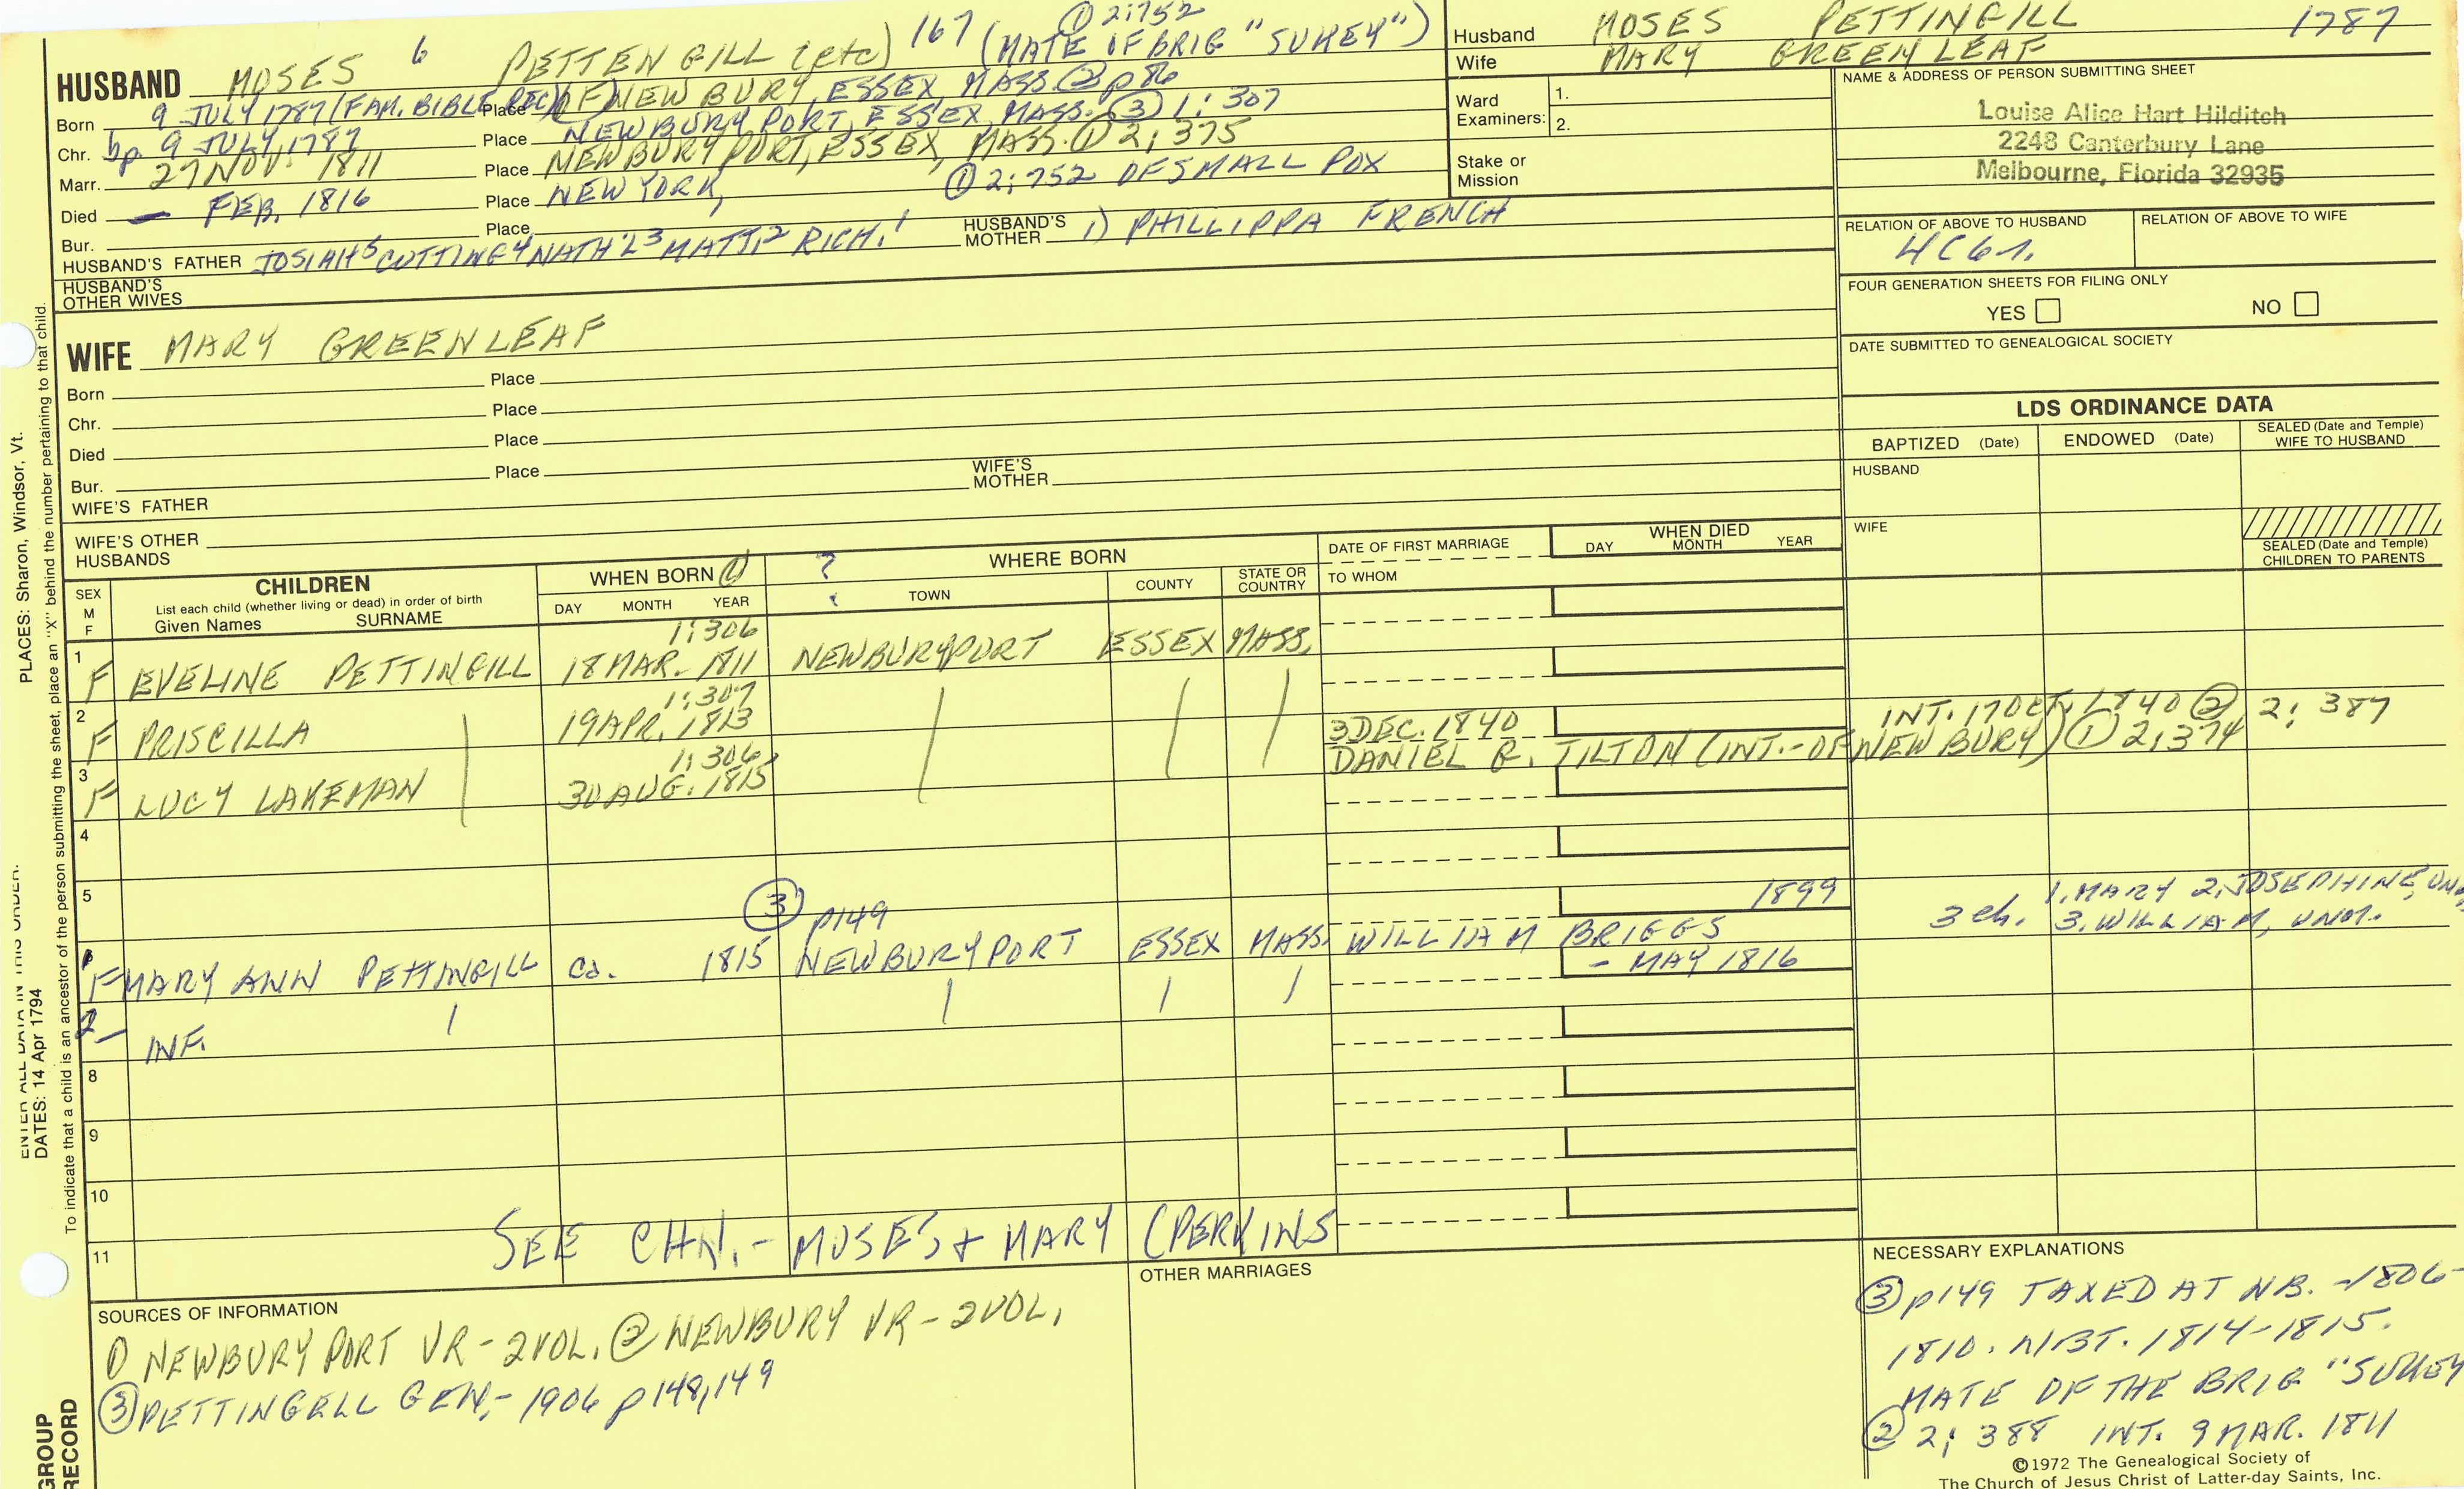 HUSBAND MOSES 6 PETTENGILL (etc) 167 (MATE OF BRIG "SUKEY") ① 2:752
Born 9 JULY 1787 (FAM. BIBLE REC) Place (OF) NEWBURY, ESSEX, MASS. ② p 86
Chr. bp 9 JULY, 1787 Place NEWBURYPORT, ESSEX, MASS. ③ 1:307
Marr. 27 NOV. 1811 Place NEWBURYPORT, ESSEX, MASS. ① 2; 375
Died — FEB. 1816 Place NEW YORK, ① 2;752 OF SMALL POX
Bur. Place
HUSBAND'S FATHER JOSIAH 5 CUTTING 4 NATH'L 3 MATT. 2 RICH. 1 HUSBAND'S MOTHER 1) PHILLIPPA FRENCH
HUSBAND'S OTHER WIVES
Husband MOSES PETTINGILL 1787
Wife MARY GREENLEAF
Ward Examiners: 1.
2.
Stake or Mission
NAME & ADDRESS OF PERSON SUBMITTING SHEET
Louise Alice Hart Hilditch
2248 Canterbury Lane
Melbourne, Florida 32935
RELATION OF ABOVE TO HUSBAND RELATION OF ABOVE TO WIFE
4C6r.
FOUR GENERATION SHEETS FOR FILING ONLY
YES NO
DATE SUBMITTED TO GENEALOGICAL SOCIETY
WIFE MARY GREENLEAF
Born Place
Chr. Place
Died Place
Bur. Place
WIFE'S FATHER WIFE'S MOTHER
WIFE'S OTHER HUSBANDS
LDS ORDINANCE DATA
BAPTIZED (Date) ENDOWED (Date) SEALED (Date and Temple) WIFE TO HUSBAND
HUSBAND
WIFE
SEALED (Date and Temple) CHILDREN TO PARENTS
SEX M F
CHILDREN
List each child (whether living or dead) in order of birth
Given Names SURNAME
WHEN BORN ①
DAY MONTH YEAR
? WHERE BORN
TOWN COUNTY STATE OR COUNTRY
DATE OF FIRST MARRIAGE
TO WHOM
WHEN DIED
DAY MONTH YEAR
1:306
1 F EVELINE PETTINGILL 18 MAR. 1811 NEWBURYPORT ESSEX MASS.
1:307
2 F PRISCILLA | 19 APR. 1813 | | | 3 DEC. 1840 INT. 17 OCT, 1840 ② 2; 387
DANIEL R. TILTON (INT. - OF NEWBURY) ① 2;374
1:306
3 F LUCY LAKEMAN 30 AUG. 1815
4
5 1899
③ p149
F MARY ANN PETTINGILL ca. 1815 NEWBURYPORT ESSEX MASS. WILLIAM BRIGGS 3 ch. 1. MARY 2. JOSEPHINE, UNM
3. WILLIAM, UNM.
- MAY 1816
2 — INF. | | | |
8
9
10
11 SEE CHN. - MOSES + MARY (PERKINS
SOURCES OF INFORMATION
① NEWBURYPORT VR - 2 VOL. ② NEWBURY VR - 2 VOL.
③ PETTINGELL GEN, - 1906 p 148, 149
OTHER MARRIAGES
NECESSARY EXPLANATIONS
③ p149 TAXED AT NB. 1806-
1810. NBT. 1814-1815.
MATE OF THE BRIG "SUKEY
② 2; 388 INT. 9 MAR. 1811
©1972 The Genealogical Society of
The Church of Jesus Christ of Latter-day Saints, Inc.
PLACES: Sharon, Windsor, Vt.
ENTER ALL DATA IN THIS ORDER:
DATES: 14 Apr 1794
To indicate that a child is an ancestor of the person submitting the sheet, place an "X" behind the number pertaining to that child.
GROUP
RECORD